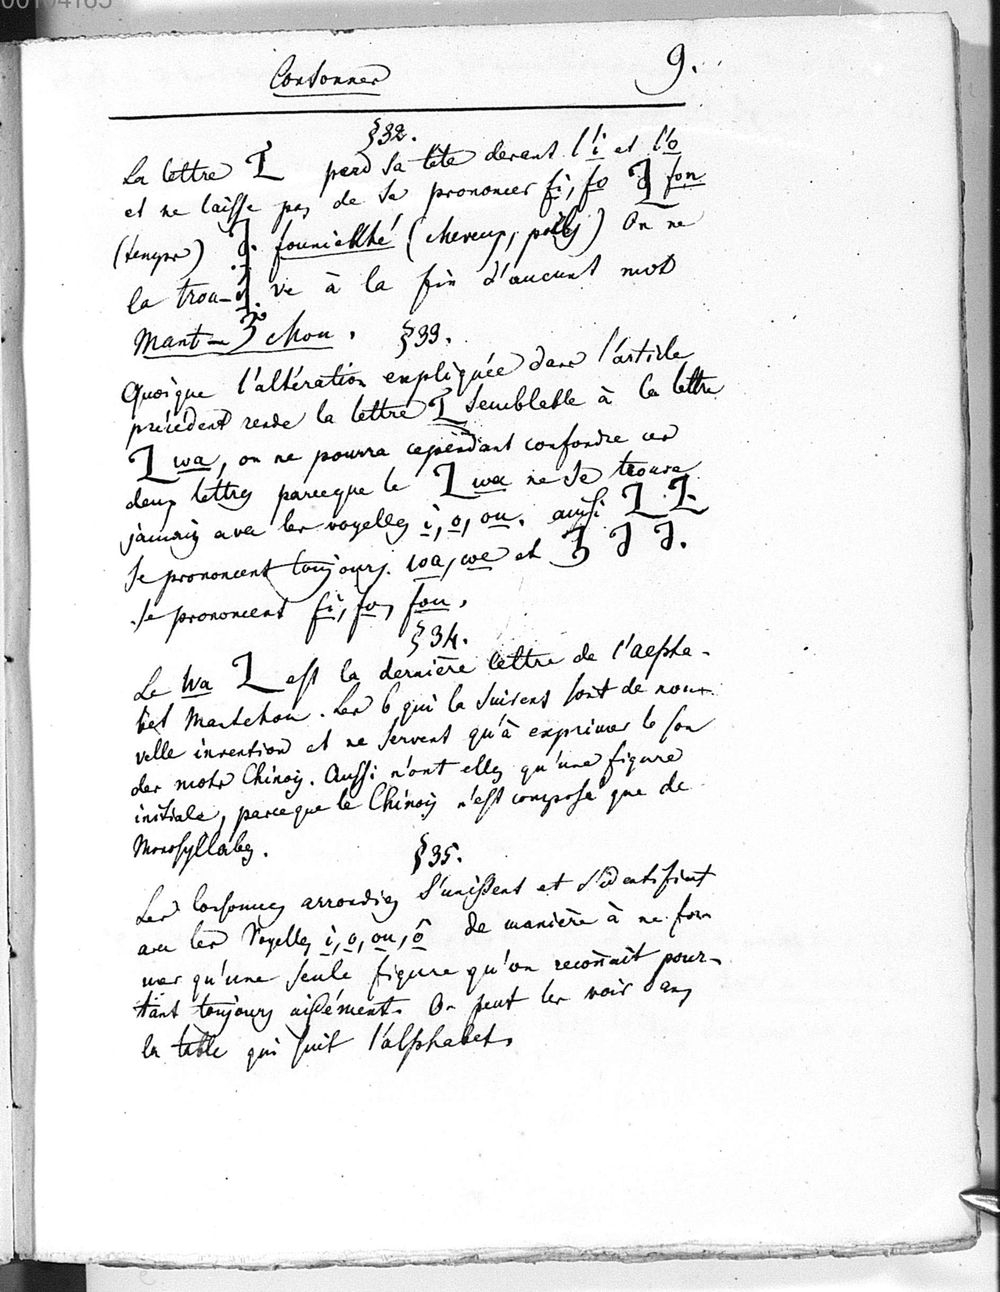 00104165
Consonnes 9.
§32.
La lettre perd sa tête devant l'i et l'o
et ne laisse pas de se prononcer fi, fo fon
(temps) founiekhé (cheveux, poils) On ne
la trou- ve à la fin d'aucunt mot
Mant- chou. §33.
Quoique l'altération expliquée dans l'article
précédent rende la lettre semblable à la lettre
wa, on ne pourra cependant confondre ces
deux lettres parceque le wa ne se trouve
jamais avec les voyelles i, o, ou. aussi
se prononcent toujours wa, we et
se prononcent fi, fo, fou.
§34.
Le Wa est la dernière lettre de l'alpha-
bet Mantchou. Les 6 qui la suivent sont de nou-
velle invention et ne servent qu'à exprimer le son
des mots Chinois. Aussi n'ont elles qu'une figure
initiale, parceque le Chinois n'est composé que de
Monosyllabes.
§35.
Les Consonnes arrondies s'unissent et s'identifient
avec les Voyelles i, o, ou, ô de manière à ne for-
mer qu'une seule figure qu'on reconnait pour-
tant toujours aisément. On peut les voir dans
la table qui suit l'alphabet.